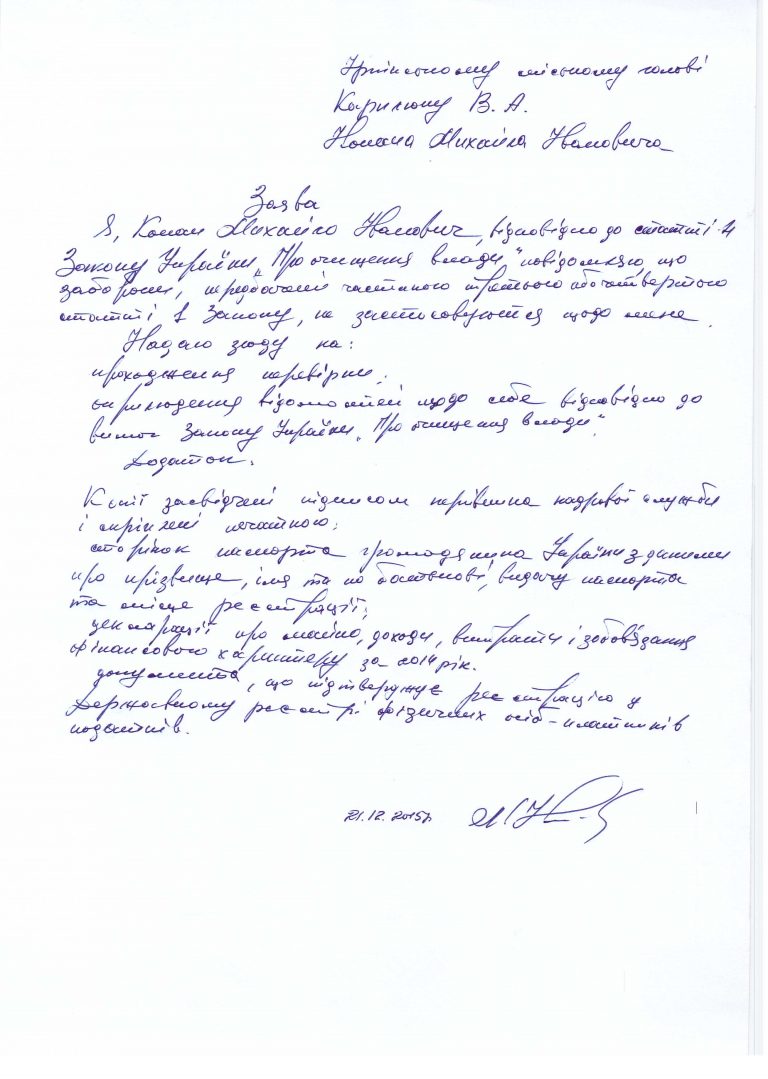 Ірпінському міському голові
Карплюку В. А.
Конана Михайла Івановича
Заява
Я, Конан Михайло Іванович, відповідно до статті 4
Закону України „Про очищення влади" повідомляю, що
заборони, передбачені частиною третьою або четвертою
статті 1 Закону, не застосовуються щодо мене.
Надаю згоду на:
проходження перевірки;
оприлюднення відомостей щодо себе відповідно до
вимог Закону України „Про очищення влади".
Додаток:
Копії засвідчені підписом керівника кадрової служби
і скріплені печаткою:
сторінок паспорта громадянина України з даними
про прізвище, ім'я та по батькові, видачу паспорта
та місце реєстрації;
декларації про майно, доходи, витрати і зобов'язання
фінансового характеру за 2014 рік.
документа, що підтверджує реєстрацію у
Державному реєстрі фізичних осіб - платників
податків.
21.12.2015р.